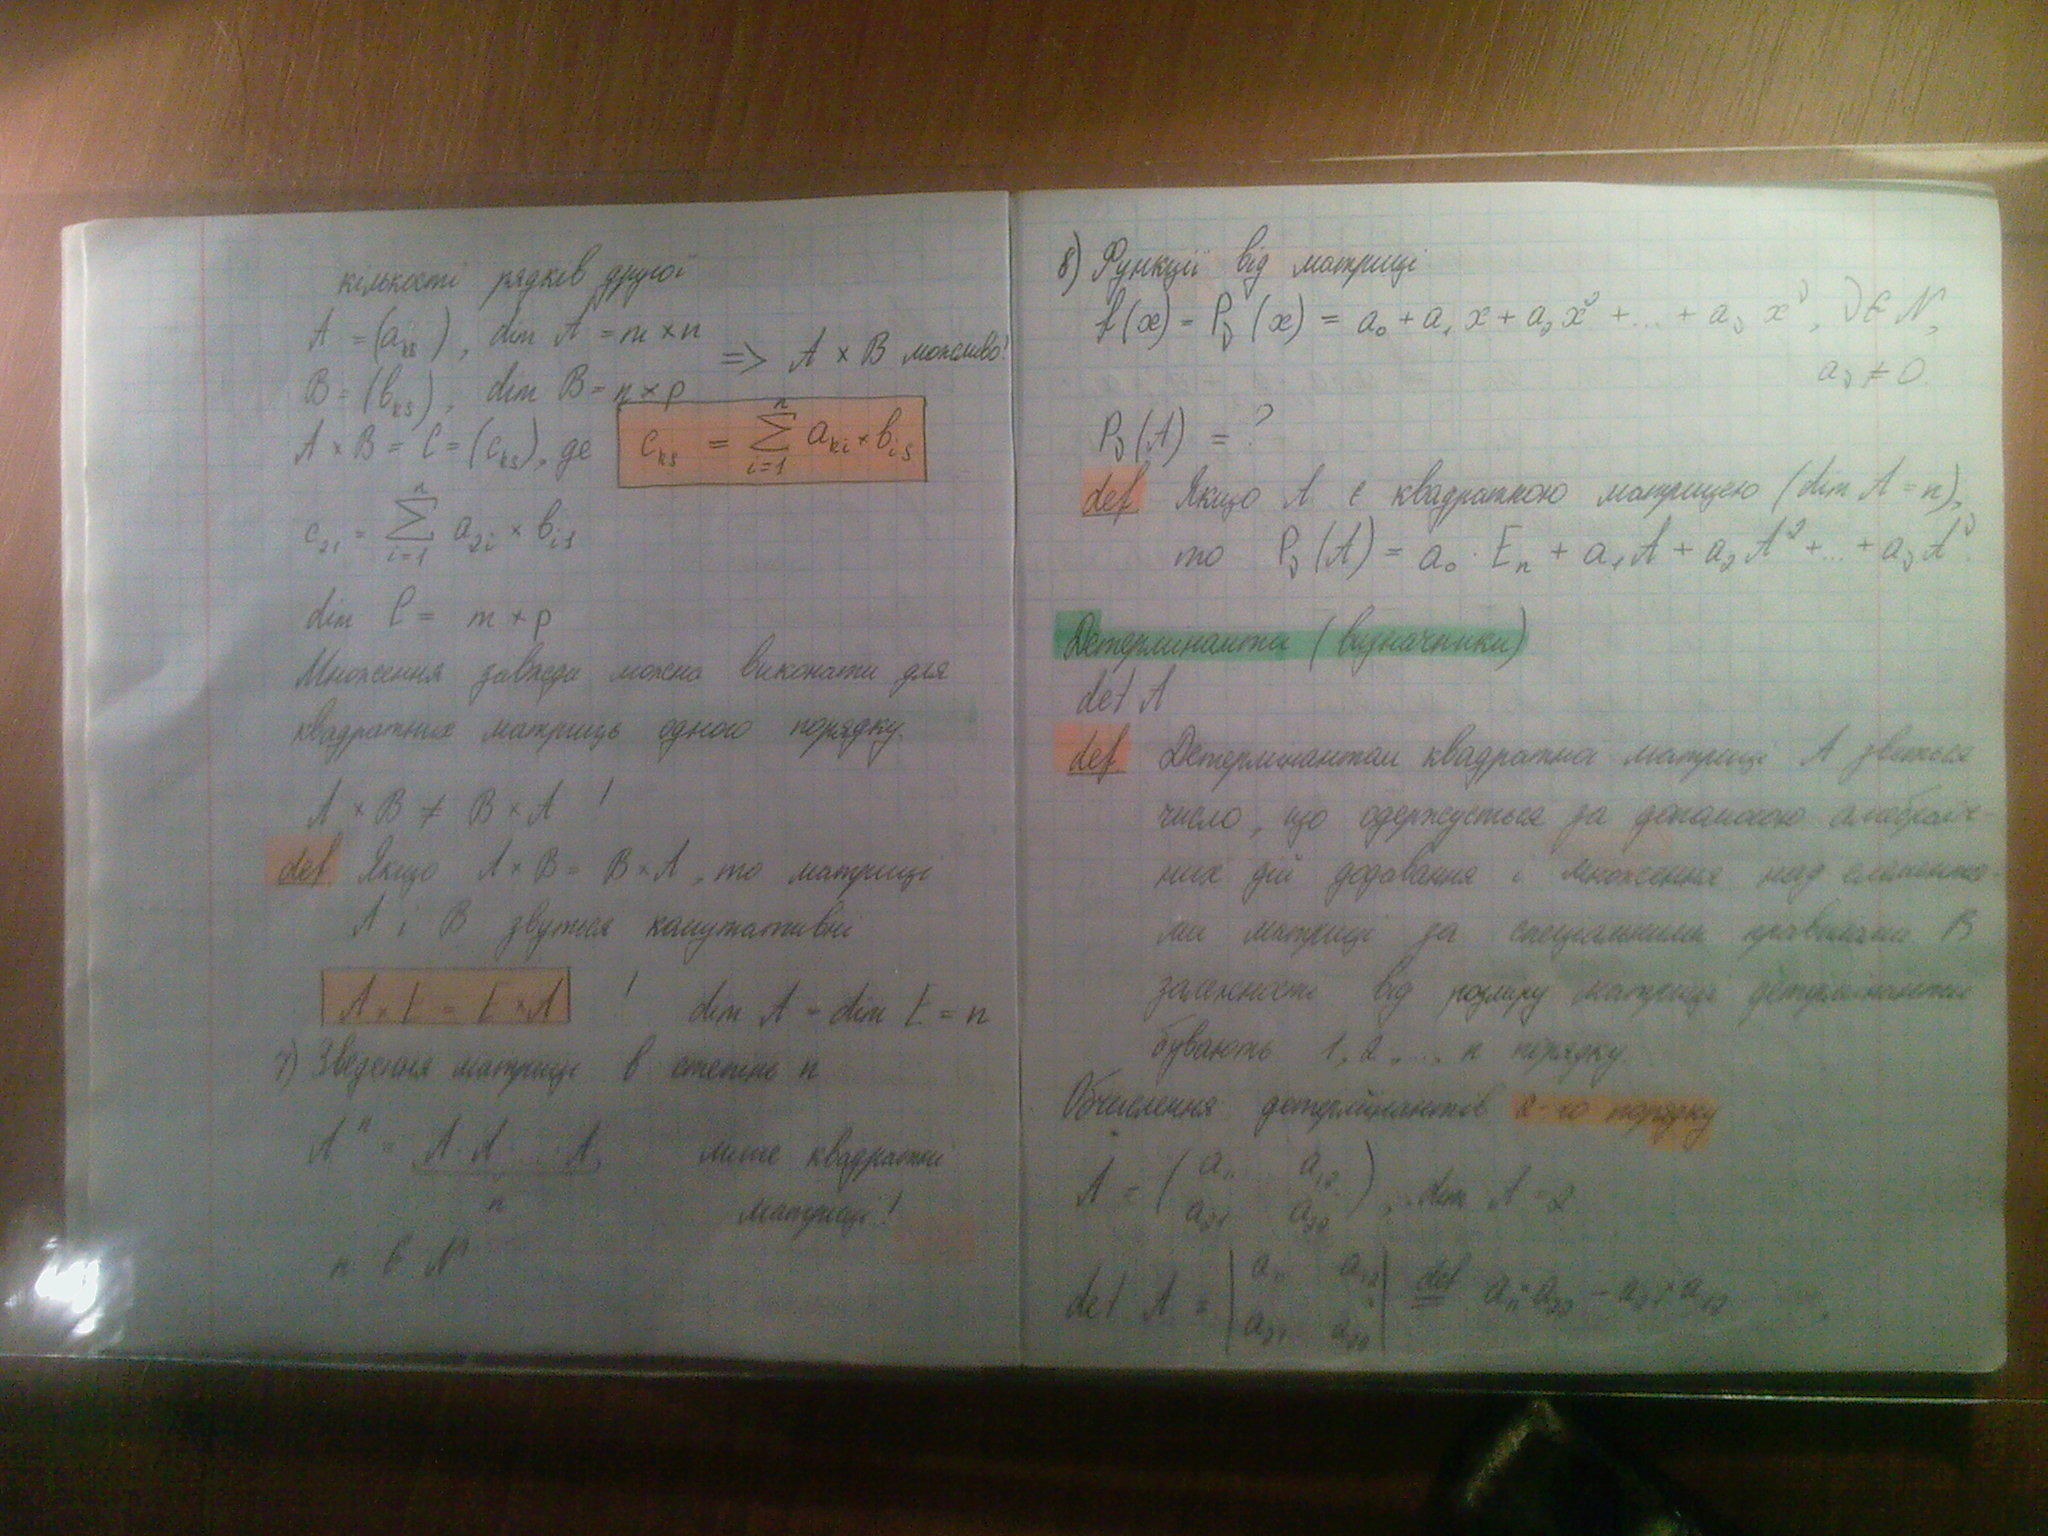 кількості рядків другої
A = (aₖₛ), dim A = m × n
=> A × B можливо!
B = (bₖₛ), dim B = n × p
A × B = C = (cₖₛ), де cₖₛ = ∑ⁿᵢ₌₁ aₖᵢ × bᵢₛ
c₂₁ = ∑ⁿᵢ₌₁ a₂ᵢ × bᵢ₁
dim C = m × p
Множення завжди можна виконати для
квадратних матриць одного порядку.
A × B ≠ B × A !
def Якщо A × B = B × A, то матриці
A і B звуться комутативні
A × E = E × A ! dim A = dim E = n
7) Зведення матриці в степінь n
Aⁿ = A · A · ... · A лише квадратні
n матриці!
n є N
8) Функції від матриці
f(x) = P₃(x) = a₀ + a₁x + a₂x² + ... + a₃x³, ∂ ∈ N,
a₃ ≠ 0.
P₃(A) = ?
def Якщо A є квадратною матрицею (dim A = n),
то P₃(A) = a₀ · Eₙ + a₁A + a₂A² + ... + a₃A³.
Детермінанти (визначники)
det A
def Детермінантом квадратної матриці A зветься
число, що одержується за допомогою алгебраїч-
них дій додавання і множення над елемента-
ми матриці за спеціальними правилами В
залежності від розміру матриці детермінанти
бувають 1, 2, ... n порядку.
Обчислення детермінантів 2-го порядку
A = (a₁₁ a₁₂
a₂₁ a₂₂), dim A = 2
det A = |a₁₁ a₁₂
a₂₁ a₂₂| def = a₁₁ · a₂₂ − a₂₁ · a₁₂